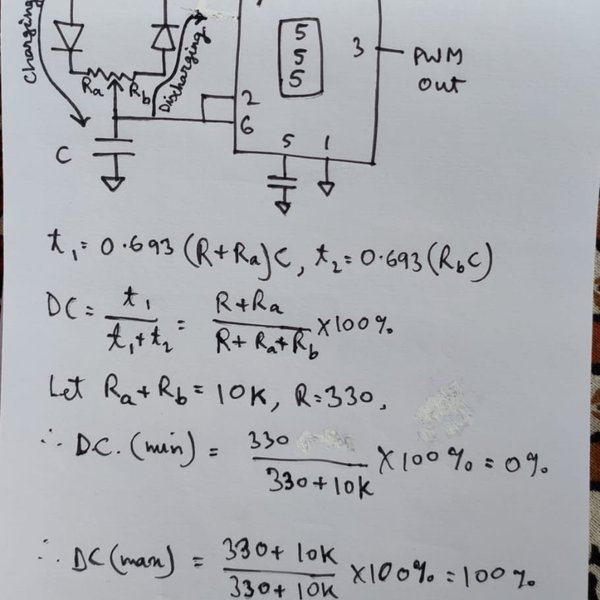 Charging
Ra
Rb
Discharging
C
5
5
5
2
6
3
PWM
Out
5
1
t₁ = 0.693 (R+Ra)C, t₂ = 0.693(RbC)
DC = t₁ / t₁+t₂ = R+Ra / R+Ra+Rb ×100%
Let Ra+Rb = 10K, R=330,
∴ D.C. (min) = 330 / 330+10K ×100% = 0%
∴ DC (max) = 330+10K / 330+10K ×100% = 100%